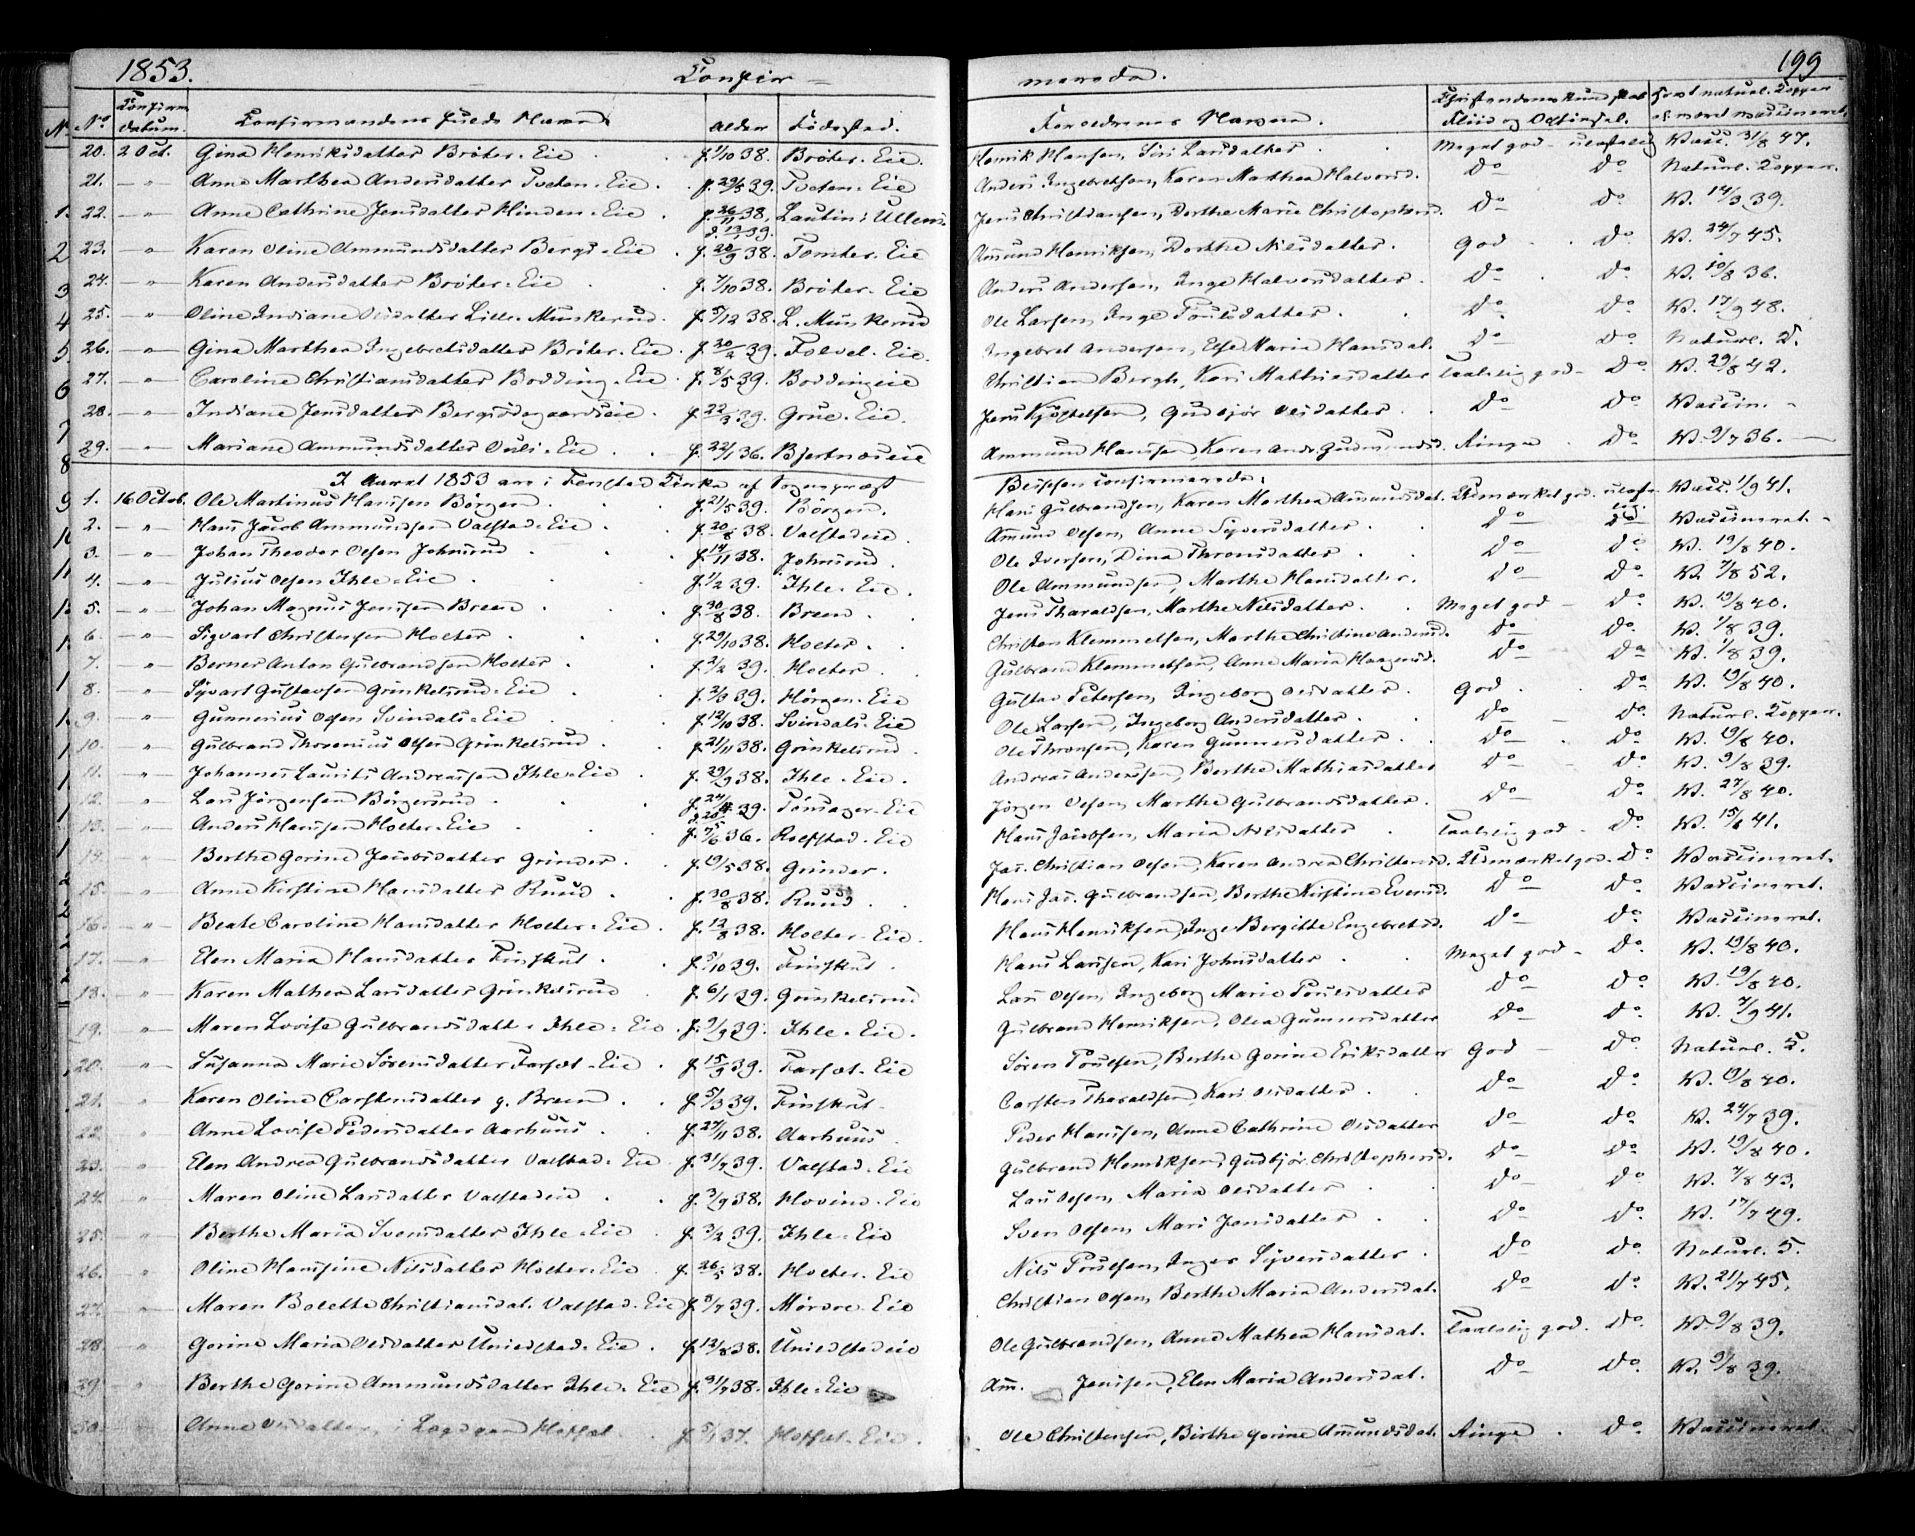 1853. Confir- merede. 199
No. Confirm. datum. Confirmandens fulde Navn Alder Fødested. Forældrenes Navne. Christendomskundskab Flid og Opførsel. havt naturl. Kopper el. været vaccineret.
20. 2 Oct. Gina Henriksdatter Bröter-Eie f. 1/10 38. Bröter-Eie. Henrik Hansen, Siri Larsdatter. Meget god - ulastelig Vacc. 31/8 47.
21. — " — Anne Marthea Andersdatter Tveten-Eie. f. 29/3 39. Tveten-Eie Anders Ingebretsen, Karen Marthea Halvorsd. Do Do Naturl. Kopper.
22. — " — Anne Cathrine Jensdatter Hinden-Eie. f. 26/11 38, d. 13/1 39. Lautin i Ullens. Jens Christiansen, Dorthe Marie Christophersd. Do Do V. 14/3 39.
23. — " — Karen Oline Ammundsdatter Bergs-Eie. f. 20/9 38. Tomter-Eie Amund Henriksen, Dorthe Nilsdatter. God Do V. 24/7 45.
24. — " — Karen Andersdatter Bröter-Eie f. 7/10 38. Bröter-Eie Anders Andersen, Inge Halvorsdatter. Do Do V. 10/8 36.
25. — " — Oline Indiane Olsdatter Lille-Munkerud. f. 5/12 38. L. Munkerud Ole Larsen, Inge Poulsdatter. Do Do V. 17/9 48.
26. — " — Gina Marthea Ingebretsdatter Bröter-Eie. f. 20/2 39. Folvel-Eie. Ingebret Andersen, Else Maria Hansdat. Do Do Naturl. K.
27. — " — Caroline Christiansdatter Bodding-Eie. f. 8/5 39. Boddingeie Christian Bergh, Kari Mathiesdatter Taalelig god - Do V. 29/8 42.
28. — " — Indiane Jensdatter Bergsödegaardseie. f. 22/3 39. Grue-Eie. Jens Kjöstelsen, Gudbjör Olsdatter. Do Do Vaccin. -
29. — " — Mariane Ammundsdatter Ousi-Eie. f. 22/1 36. Bjertnæseie Ammund Hansen, Karen Andr. Gudmundsd. Ringe. Do V. 9/7 36. —
I Aaret 1853 ere i Fenstad Kirke af Sognepræst Blichfeldt confirmerede:
1. 16 Octob. Ole Martinus Hansen Börgen. f. 21/5 39. Börgen. Hans Gulbrandsen, Karen Marthea Amundsdat. Udmærket god. ulastelig. Vacc. 1/9 41.
2. — " — Hans Jacob Ammundsen Valstad-Eie. f. 20/8 38. Valstadeie. Amund Olsen, Anne Syversdatter. Do Do Vaccineret -
3. — " — Johan Theodor Olsen Johnsrud. f. 14/11 38. Johnsrud. Ole Iversen, Dina Thronsdatter. Do Do V. 19/8 40.
4. — " — Julius Olsen Ihle-Eie. f. 1/2 39. Ihle-Eie. Ole Ammundsen, Marthe Hansdatter. Do Do V. 7/8 52.
5. — " — Johan Magnus Jensen Breen. f. 30/8 38. Breen. Jens Tharaldsen, Marthe Nilsdatter. Meget god - Do V. 19/8 40.
6. — " — Sigvart Christensen Holter. f. 29/10 38. Holter. Christen Klemmetsen, Marthe Christine Andersd. Do Do V. 1/8 39.
7. — " — Berner Anton Gulbrandsen Holter. f. 3/2 39. Holter. Gulbrand Klemmetsen, Anne Maria Haagensd. Do Do V. 1/8 39.
8. — " — Syvart Gustavsen Grinkelsrud-Eie. f. 2/3 39. Hörgen-Eie Gustav Petersen, Ingeborg Olsdatter. God Do V. 19/8 40.
9. — " — Gunnerius Olsen Svindals-Eie f. 12/10 38. Svindals-Eie Ole Larsen, Ingeborg Andersdatter. Do Do Naturl. Kopper.
10. — " — Gulbrand Thorenius Olsen Grinkelsrud. f. 21/11 38. Grinkelsrud. Ole Thronsen, Karen Gunnersdatter. Do Do V. 19/8 40.
11. — " — Johannes Laurits Andreassen Ihle-Eie. f. 29/9 38. Ihle-Eie. Andreas Andersen, Berthe Mathiasdatter Do Do V. 9/8 39.
12. — " — Lars Jörgensen Börgersrud. f. 24/4 39. Tönsager-Eie Jörgen Olsen, Marthe Gulbrandsdatter. Do Do V. 27/8 40.
13. — " — Anders Hansen Holter-Eie. f. 36. Rolfstad-Eie Hans Jacobsen, Maria Nilsdatter. Taalelig god - Do V. 15/6 41.
14. — " — Berthe Gorine Jacobsdatter Grinder. f. 19/5 38. Grinder. Jac. Christian Olsen, Karen Andrea Christensd. Udmærket god. Do Vaccineret.
15. — " — Anne Kirstine Hansdatter Ruud. f. 30/8 38. Ruud. Hans Jac. Gulbrandsen, Berthe Kirstine Eversd. Do Do Vaccineret.
16. — " — Beate Caroline Hansdatter Holter-Eie. f. 12/8 38. Holter-Eie. Hans Henriksen, Inge Birgitte Engebretsd. Do Do Vaccineret.
17. — " — Elen Maria Hansdatter Finskut. f. 5/10 39. Finskut. Hans Larsen, Kari Johnsdatter. Meget god - Do V. 19/8 40.
18. — " — Karen Mathea Larsdatter Grinkelsrud f. 6/1 39. Grinkelsrud Lars Olsen, Ingeborg Marie Poulsdatter Do Do V. 19/8 40.
19. — " — Maren Lovise Gulbrandsdatt. Ihle-Eie. f. 9/3 39. Ihle-Eie. Gulbrand Henriksen, Olea Gunnersdatter Do Do V. 7/9 41.
20. — " — Susanna Marie Sörensdatter Farset-Eie. f. 15/3 39. Farset-Eie Sören Poulsen, Berthe Gorine Eriksdatter God - Do Naturl. K.
21. — " — Karen Oline Carstensdatter g. Breen. f. 5/3 39. Finskut. Carsten Tharaldsen, Kari Olsdatter. Do Do V. 19/8 40.
22. " Anne Lovise Pedersdatter Aarhuus. f. 27/11 38. Aarhuus. Peder Hansen, Anne Cathrine Olsdatter Do Do V. 24/7 39.
23. " Elen Andrea Gulbrandsdatter Valstad-Eie. f. 31/7 39. Valstad-Eie Gulbrand Henriksen, Gudbjör Christophersd. Do Do V. 19/8 40.
24. " Maren Oline Larsdatter Valstadeie. f. 3/9 38. Hovind-Eie Lars Olsen, Maria Olsdatter. Do Do V. 7/8 43.
25. " Berthe Maria Svensdatter Ihle-Eie. f. 3/2 39. Ihle-Eie Sven Olsen, Mari Jensdatter. Do Do V. 17/7 49.
26. " Oline Hansine Nilsdatter Holter-Eie. f. 26/5 38. Holter-Eie Nils Poulsen, Inger Syversdatter. Do Do Naturl. K.
27. " Maren Bolette Christiansdat. Valstad-Eie f. 5/7 39. Mördre-Eie Christian Olsen, Berthe Maria Andersdat. Do Do V. 21/7 45.
28. " Gorine Maria Olsdatter Uniedstad-Eie. f. 12/8 38. Uniedstadeie Ole Gulbrandsen, Anne Mathea Hansdat. Taalelig god. Do V. 9/8 39.
29 " Berthe Gorine Ammundsdatter Ihle-Eie f. 31/7 38. Ihle-Eie Am. Jensen, Elen Maria Andersdat. Do Do V. 9/8 39.
30. Anne Olsdatter, i Lagdgen Holset. f. 5/1 37. Holset-Eie. Ole Christensen, Birthe Gorine Amundsdat. Ringe. Do Vaccineret.